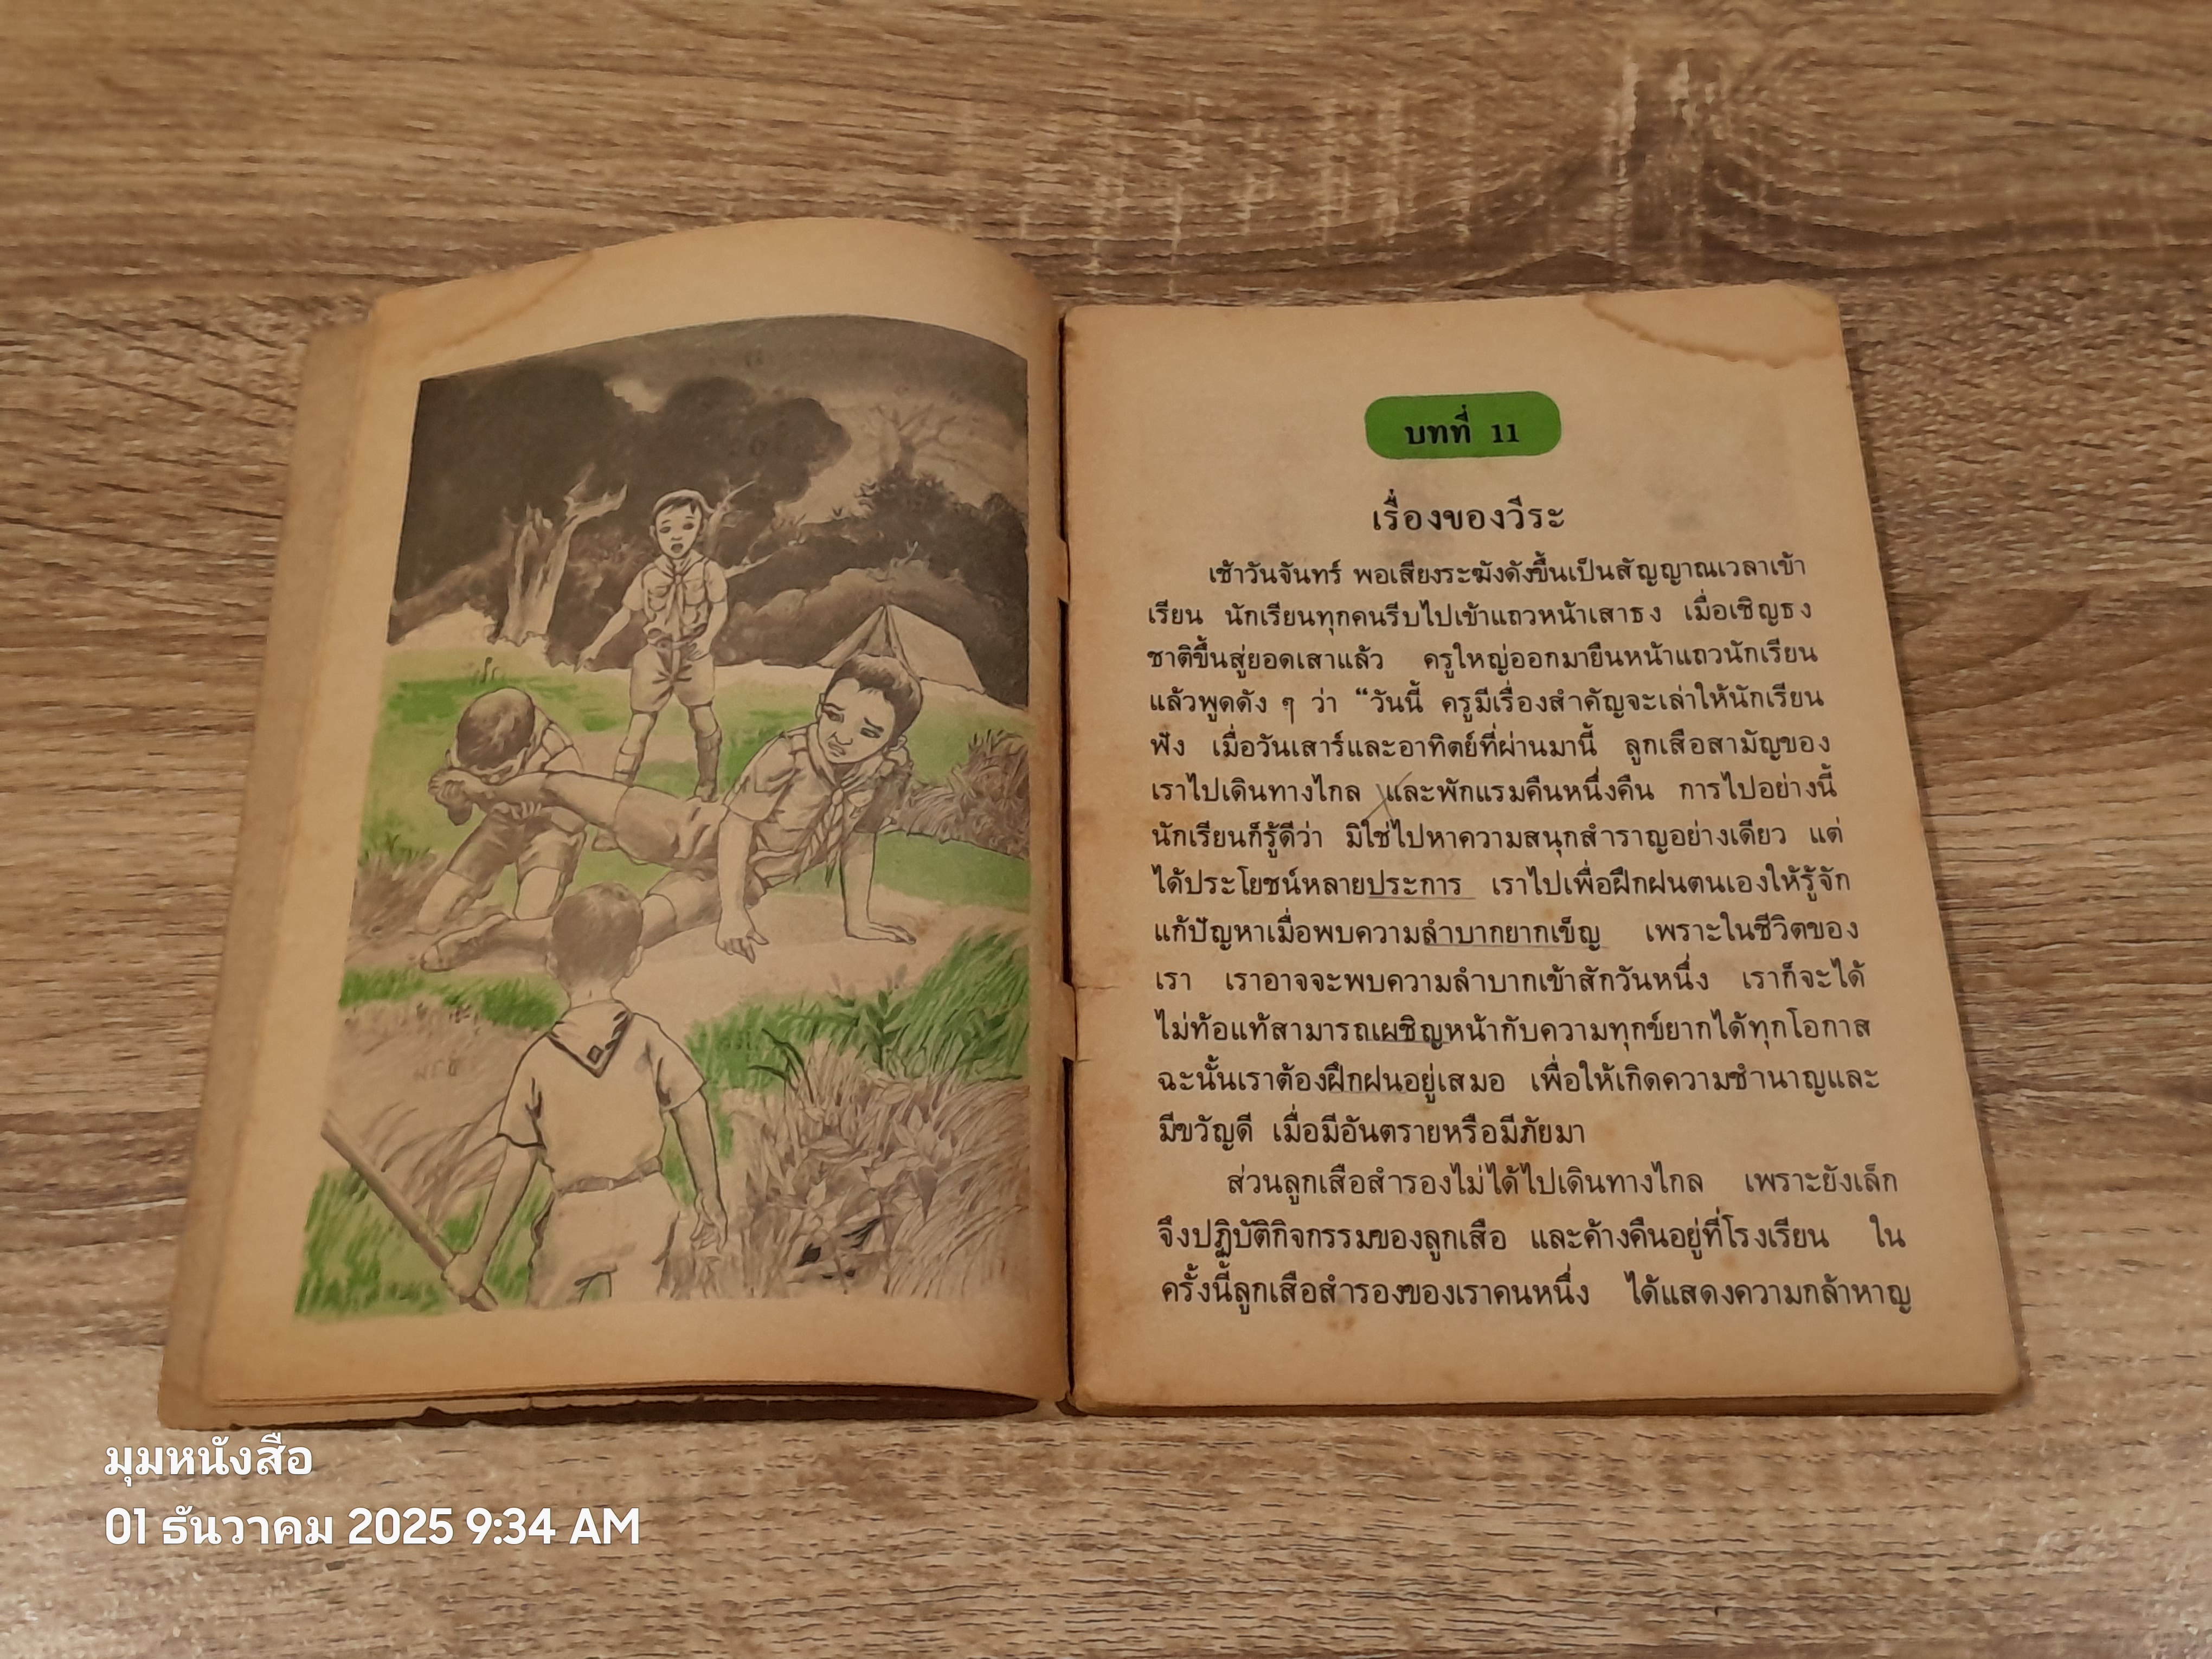 บทที่ 11
เรื่องของวีระ
เช้าวันจันทร์ พอเสียงระฆังดังขึ้นเป็นสัญญาณเวลาเข้า
เรียน นักเรียนทุกคนรีบไปเข้าแถวหน้าเสาธง เมื่อเชิญธง
ชาติขึ้นสู่ยอดเสาแล้ว ครูใหญ่ออกมายืนหน้าแถวนักเรียน
แล้วพูดดัง ๆ ว่า “วันนี้ ครูมีเรื่องสำคัญจะเล่าให้นักเรียน
ฟัง เมื่อวันเสาร์และอาทิตย์ที่ผ่านมานี้ ลูกเสือสามัญของ
เราไปเดินทางไกล และพักแรมคืนหนึ่งคืน การไปอย่างนี้
นักเรียนก็รู้ดีว่า มิใช่ไปหาความสนุกสำราญอย่างเดียว แต่
ได้ประโยชน์หลายประการ เราไปเพื่อฝึกฝนตนเองให้รู้จัก
แก้ปัญหาเมื่อพบความลำบากยากเข็ญ เพราะในชีวิตของ
เรา เราอาจจะพบความลำบากเข้าสักวันหนึ่ง เราก็จะได้
ไม่ท้อแท้สามารถเผชิญหน้ากับความทุกข์ยากได้ทุกโอกาส
ฉะนั้นเราต้องฝึกฝนอยู่เสมอ เพื่อให้เกิดความชำนาญและ
มีขวัญดี เมื่อมีอันตรายหรือมีภัยมา
ส่วนลูกเสือสำรองไม่ได้ไปเดินทางไกล เพราะยังเล็ก
จึงปฏิบัติกิจกรรมของลูกเสือ และค้างคืนอยู่ที่โรงเรียน ใน
ครั้งนี้ลูกเสือสำรองของเราคนหนึ่ง ได้แสดงความกล้าหาญ
มุมหนังสือ
01 ธันวาคม 2025 9:34 AM